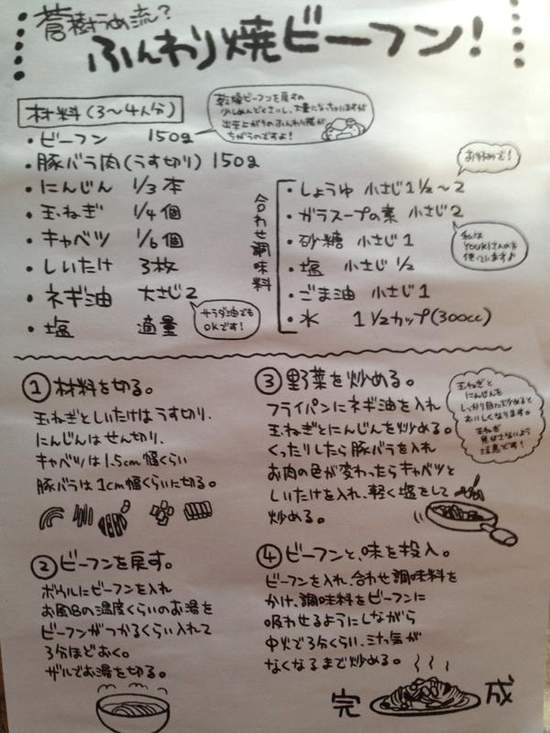 蒼樹うめ流?
ふんわり焼ビーフン!
材料(3〜4人分)
乾燥ビーフンを戻すの
少しめんどくさいし、大量になっちゃいますが
出来上がりのふんわり感が
ちがうのですよ!
・ビーフン 150g
・豚バラ肉(うす切り) 150g
・にんじん 1/3本
・玉ねぎ 1/4個
・キャベツ 1/6個
・しいたけ 3枚
・ネギ油 大さじ2
サラダ油でも
OKです!
・塩 適量
合わせ調味料
お好みで!
・しょうゆ 小さじ1 1/2〜2
・ガラスープの素 小さじ2
私は
YOUKIさんのを
使ってます♪
・砂糖 小さじ1
・塩 小さじ1/2
・ごま油 小さじ1
・水 1 1/2カップ(300cc)
①材料を切る。
玉ねぎとしいたけはうす切り、
にんじんはせん切り、
キャベツは1.5cm幅くらい
豚バラは1cm幅くらいに切る。
②ビーフンを戻す。
ボウルにビーフンを入れ
お風呂の温度くらいのお湯を
ビーフンがつかるくらい入れて
3分ほどおく。
ザルでお湯を切る。
③野菜を炒める。
フライパンにネギ油を入れ
玉ねぎとにんじんを炒める。
くったりしたら豚バラを入れ
お肉の色が変わったらキャベツと
しいたけを入れ、軽く塩をして
炒める。
玉ねぎと
にんじんを
しっかり目に炒めると
おいしくなります。
玉ねぎ
焦がさないよう
注意です!
④ビーフンと、味を投入。
ビーフンを入れ、合わせ調味料を
かけ、調味料をビーフンに
吸わせるようにしながら
中火で3分くらい、水気が
なくなるまで炒める。
完成